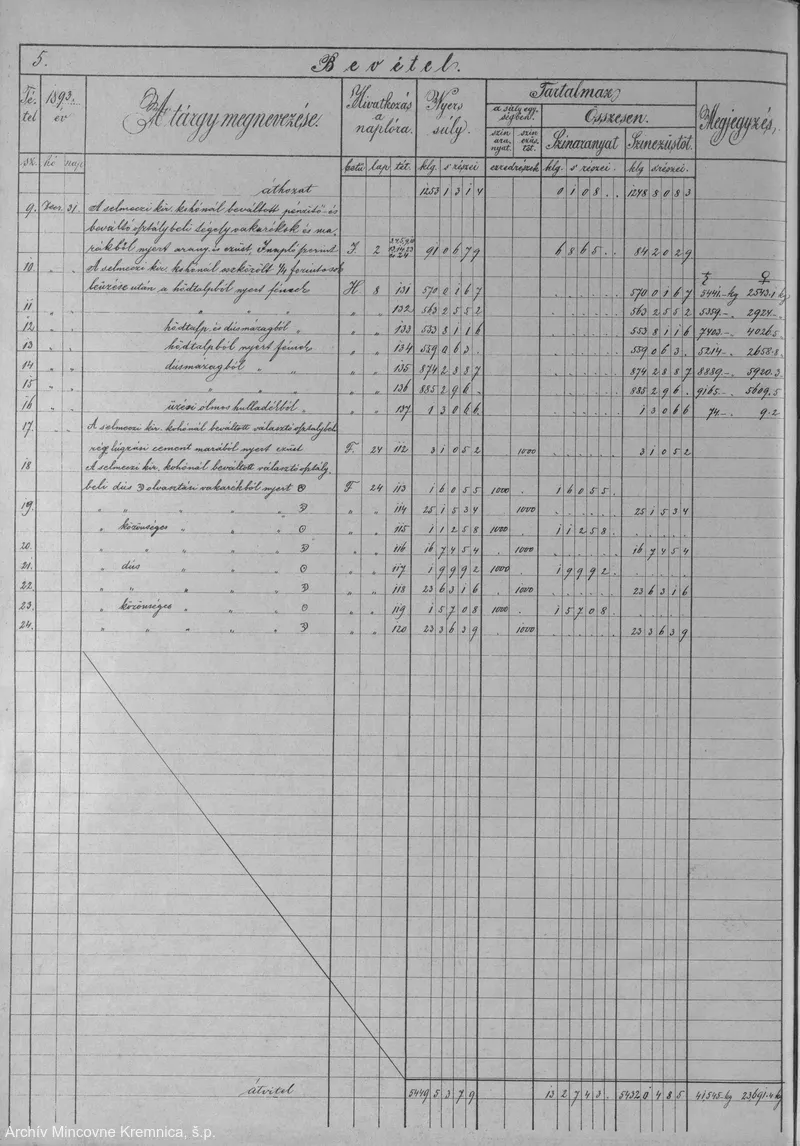 5.
Bevétel.
Té-
tel
sz.
1893.
év
hó nap
A tárgy megnevezése.
Hivatkozás
a
naplóra.
betű lap tét.
Nyers
súly.
klg. s részei
Tartalmaz
a súly egy-
ségben.
szin
ara-
nyat.
szin
ezüs-
töt.
ezredrészek
Összesen.
Szinaranyat
klg s részei.
Szinezüstöt.
klg s részei.
Megjegyzés.
áthozat 1253 1 3 1 4 0 1 0 8 . . 1248 8 0 8 3
9. Decz. 31. A selmeczi kir. kohónál beváltott pénzítő- és
beváltó osztálybeliségoly vakarékok és ma-
rékból nyert arany és ezüst I napló szerint I. 2 91 0 6 7 9 6 8 6 5 . . 84 2 0 2 9
10. " " A selmeczi kir. kohónál eszközölt 1/4 forintosok
leüzése után a hődtalpból nyert fémek H 8 131 570 0 1 6 7 570 0 1 6 7 5441.- kg 2543.1 kg
11 " " " " " " 132 563 2 5 5 2 563 2 5 5 2 5359.- " 2924.- "
12 " " hődtalp és dúsmázagból " " " 133 553 8 1 1 6 553 8 1 1 6 7403.- " 4026.5 "
13 " " hődtalpból nyert fémek " " 134 559 0 6 3 . 559 0 6 3 . 5214.- " 2658.8 "
14 " " dúsmázagból " " " " 135 874 2 8 8 7 874 2 8 8 7 8889.- " 5920.3 "
15 " " " " " " 136 885 2 9 6 . 885 2 9 6 . 9165.- " 5609.5 "
16 " " üzési ólmos hulladékból " " " 137 1 3 0 6 6 1 3 0 6 6 74.- " 9.2 "
17. " " A selmeczi kir. kohónál beváltott választó osztálybeli
rég lúgzási cement marából nyert ezüst F. 24 112 3 1 0 5 2 . 1000 3 1 0 5 2
18 A selmeczi kir. kohónál beváltott választó osztály-
beli dús ☽ olvasztási vakarékból nyert ☉ F 24 113 1 6 0 5 5 1000 . 1 6 0 5 5 .
19. " " " " " ☽ " " 114 25 1 5 3 4 . 1000 25 1 5 3 4
" közönséges " " " ☉ " " 115 1 1 2 5 8 1000 . 1 1 2 5 8 .
20. " " " " " ☽ " " 116 16 7 4 5 4 . 1000 16 7 4 5 4
21. " dús " " " ☉ " " 117 1 9 9 9 2 1000 . 1 9 9 9 2 .
22. " " " " " ☽ " " 118 23 6 3 1 6 . 1000 23 6 3 1 6
23. " közönséges " " " ☉ " " 119 1 5 7 0 8 1000 . 1 5 7 0 8 .
24. " " " " " ☽ " " 120 23 3 6 3 9 . 1000 23 3 6 3 9
átvitel 5449 5 3 7 9 13 2 7 4 3 . 5432 0 4 8 5 41545.- kg 23691.4 kg
Archív Mincovne Kremnica, š.p.